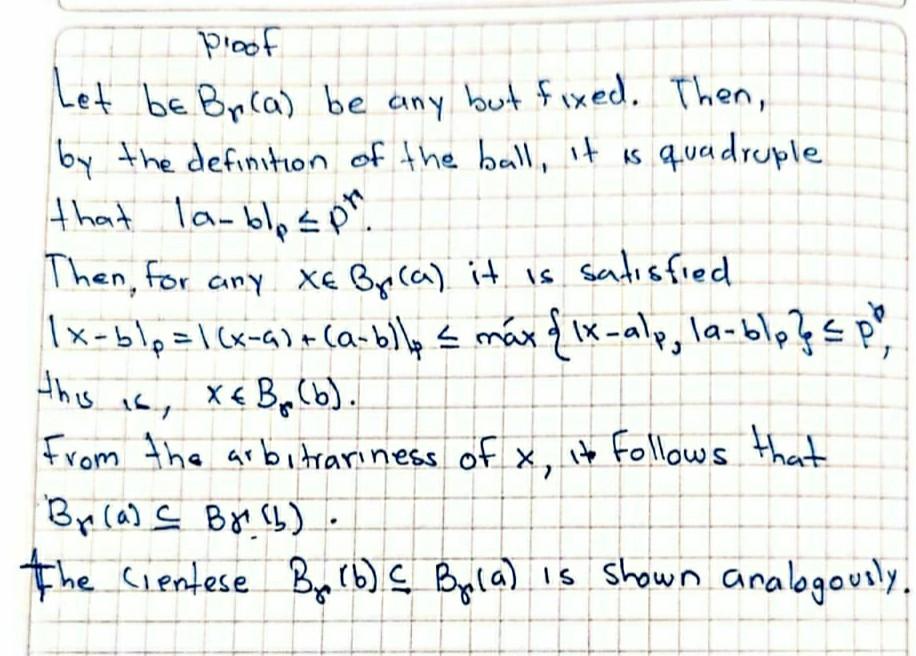 Proof
Let b∈Bγ(a) be any but fixed. Then,
by the definition of the ball, it is quadruple
that |a-b|ₚ ≤ p^γ.
Then, for any x∈Bγ(a) it is satisfied
|x-b|ₚ = |(x-a)+(a-b)|ₚ ≤ máx{|x-a|ₚ, |a-b|ₚ} ≤ p^γ,
this is, x∈Bγ(b).
From the arbitrariness of x, it follows that
Bγ(a) ⊆ Bγ(b).
The cientese Bγ(b) ⊆ Bγ(a) is shown analogously.